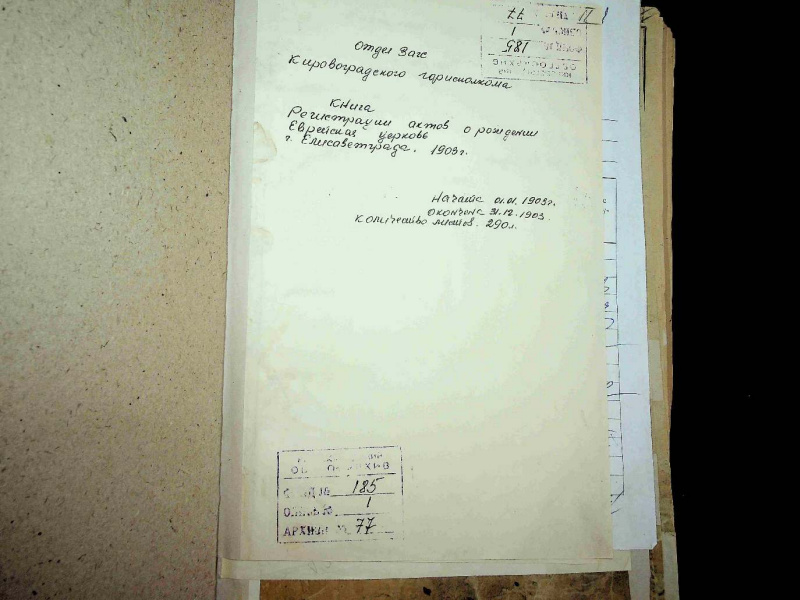 Отдел Загс
Кировоградского горисполкома
Книга
Регистрации актов о рождении
Еврейская церковь
г. Елисаветграда. 1903г.
Начата 01.01.1903г.
Окончена 31.12.1903.
Количество листов. 290л.
185
1
АРХИВН 77